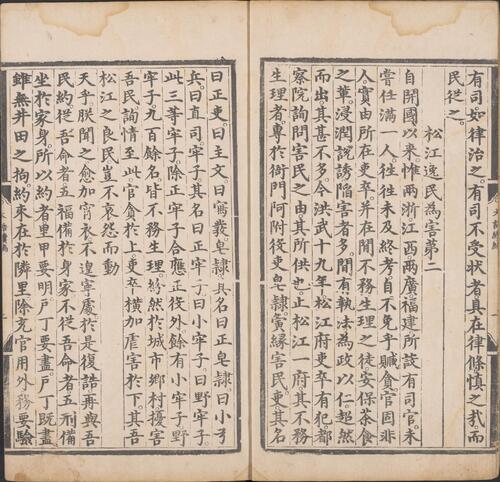 有司如律治之有司不受狀者具在律條慎之哉而
民從之
松江逸民為害第二
自開國以來惟兩浙江西兩廣福建所設有司官未
嘗任滿一人往往未及終考自不免乎贓貪官固非
人實由所在吏卒并在閒不務生理之徒安保茶食
之輩浸潤說誘陷害者多間有執法為政以仁超然
而出其甚不多今洪武十九年松江府吏卒有犯都
察院詢問害民之由其所供也止松江一府其不務
生理者專於衙門阿附役吏皂隸夤緣害民吏其名
曰正吏曰主文曰寫發皂隸其名曰正皂隸曰小弓
兵曰直司牢子其名曰正牢子曰小牢子曰野牢子
此三等牢子除正牢子合應正役外餘有小牢子野
牢子九百餘名皆不務生理紛然於城市鄉村擾害
吾民詢情至此官貪於上吏卒橫加虐害於下其吾
松江之良民豈不哀怨而動
天乎朕聞之愈加宵衣不遑寧處於是復誥再與吾
民約從吾命者五福備於身家不從吾命者五刑備
坐於家身所以約者里甲要明戶丁要盡戶丁既盡
雖無井田之拘約束在於鄰里除充官用外務要驗